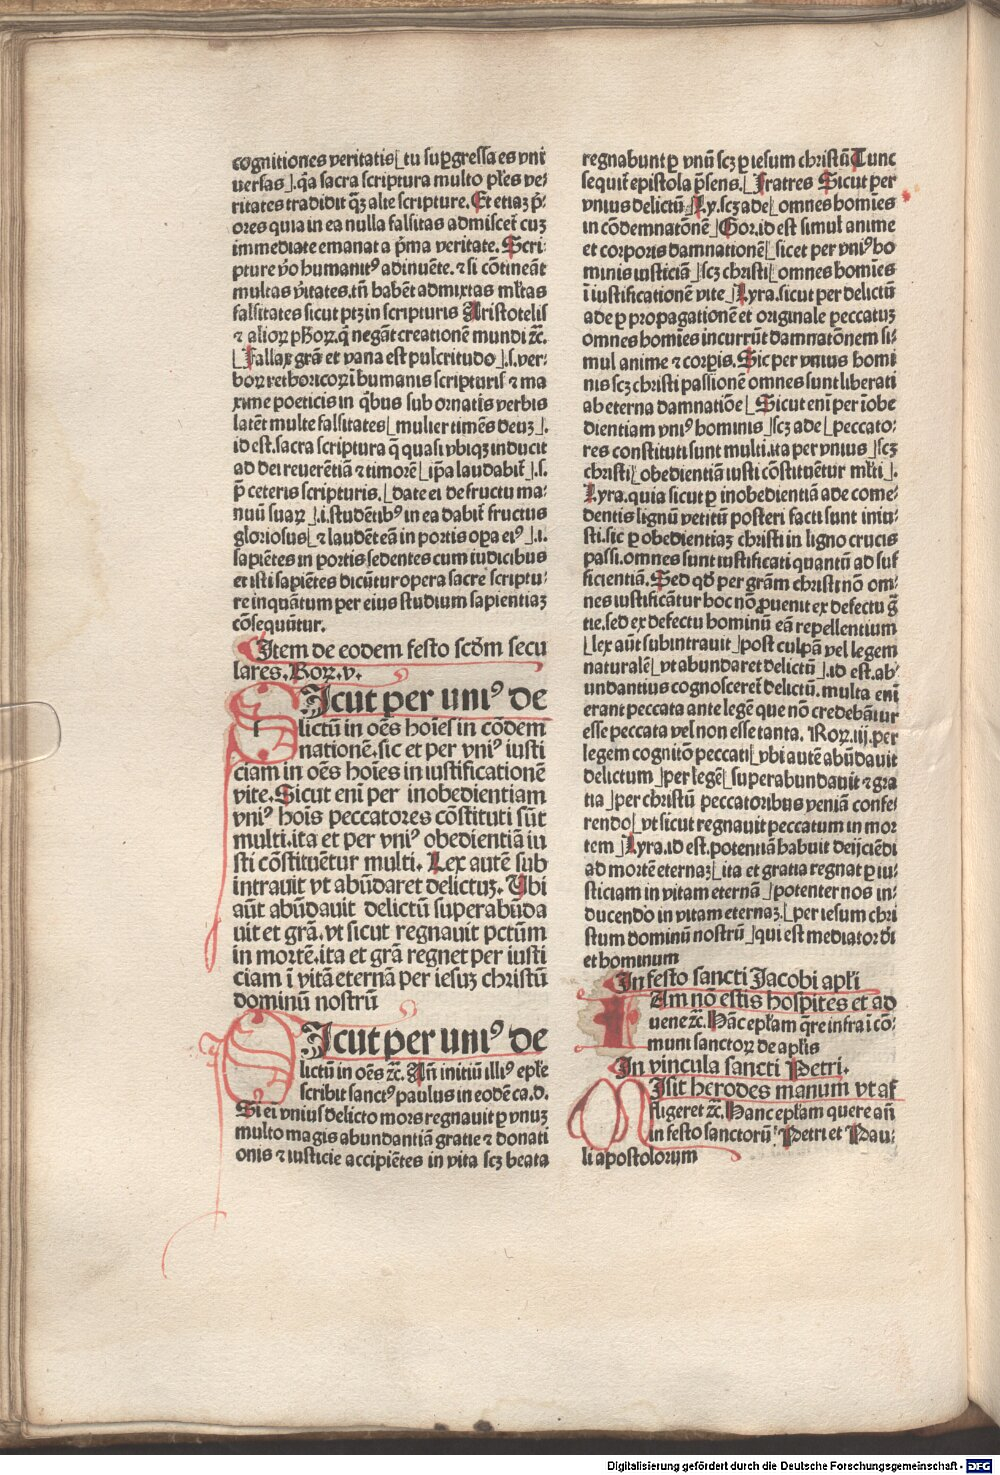 cognitiones veritatis⌊tu sup̱gressa es vni
uersas⌋.q̄a sacra scriptura multo pl̄es ve⸗
ritates tradidit q̄ꝫ alte scripture. Et etiaꝫ p̄⸗
ores quia in ea nulla falsitas admiscet᷑ cuꝫ
immediate emanat a p̄ma veritate. Scri⸗
pture v̄o humanitꝰ adinuēte.⁊ si cōtineāt
multas v̄itates.tn̄ habēt admixtas ml̄tas
falsitates sicut ptꝫ in scripturis Aristotelis
⁊ alioꝝ ph̄oꝝ.q̄ negāt creationē mundi ⁊c̄.
⌊Fallax grā et vana est pulcritudo⌋.s.ver⸗
boꝝ rethoricoꝝ ī humanis scripturis ⁊ ma
xime poeticis in q̄bus sub ornatis verbis
latēt multe falsitates⌊mulier timēs deuꝫ⌋.
id est.sacra scriptura q̄ quasi vbiqꝫ inducit
ad dei reuerētiā ⁊ timorē⌊ip̄a laudabit᷑⌋.s.
p̄ ceteris scripturis.⌊date ei de fructu ma⸗
nuū suaꝝ⌋.i.studētibꝰ in ea dabit᷑ fructus
gloriosus⌊⁊ laudēt eā in portis oꝑa eiꝰ⌋.i.
sapiētes in portis sedentes cum iudicibus
et isti sapiētes dicūtur opera sacre scriptu⸗
re inquātum per eius studium sapientiaꝫ
cōsequūtur.
Item de eodem festo scd̄m secu
lares. Roꝝ.v.
SIcut per uniꝰ de
lictū in oēs hoīes in cōdem
nationē.sic et per vniꝰ iusti
ciam in oēs hoīes in iustificationē
vite. Sicut enī per inobedientiam
vniꝰ hois peccatores cōstituti sūt
multi.ita et per vniꝰ obedientiā iu
sti cōstituētur multi. Lex autē sub
intrauit vt abūdaret delictuꝫ. Ubi
aūt abūdauit delictū superabūda
uit et grā.vt sicut regnauit pctūm
in mortē.ita et grā regnet per iusti
ciam ī vitā eternā per iesuꝫ christū
dominū nostrū
SIcut per uniꝰ de
lictū in oēs ⁊c̄. Añ initiū illiꝰ ep̄le
scribit sanctꝰ paulus in eodē ca.d.
Si ei vnius delicto mors regnauit ꝑ vnuꝫ
multo magis abundantiā gratie ⁊ donati
onis ⁊ iusticie accipiētes in vita scꝫ beata
regnabunt ꝑ vnū scꝫ ꝑ iesum christū Tunc
sequit᷑ epistola p̄sens.⌊Fratres Sicut per
vnius delictū⌋Ly.scꝫ ade⌊omnes homīes
in cōdemnatōnē⌋Gor.id est simul anime
et corporis damnationē⌊sic et per vniꝰ ho
minis iusticiā⌋scꝫ christi⌊omnes homīes
ī iustificationē vite⌋Lyra.sicut per delictū
ade ꝑ propagationē et originale peccatuꝫ
omnes homīes incurrūt damnatōnem si⸗
mul anime ⁊ corꝑis. Sic per vnius homi
nis scꝫ christi passionē omnes sunt liberati
ab eterna damnatiōe⌊Sicut enī per iobe
dientiam vniꝰ hominis⌋scꝫ ade⌊peccato⸗
res constituti sunt multi.ita per vnius⌋scꝫ
christi⌊obedientiā iusti cōstituētur ml̄ti⌋.
Lyra.quia sicut ꝑ inobedientiā ade come⸗
dentis lignū vetitū posteri facti sunt iniu⸗
sti.sic ꝑ obedientiaꝫ christi in ligno crucis
passi.omnes sunt iustificati quantū ad suf
ficientiā. Sed qd̄ per grām christi nō om⸗
nes iustificātur hoc nō ꝓuenit ex defectu g̃
tie.sed ex defectu hominū eā repellentium
⌊lex aūt subintrauit⌋post culpā vel legem
naturalē⌊vt abundaret delictū⌋.id est.ab⸗
undantius cognosceret᷑ delictū.multa enī
erant peccata ante legē que nō credebātur
esse peccata vel non esse tanta. Roꝝ.iij.per
legem cognitō peccati⌊vbi autē abūdauit
delictum⌋per legē⌊superabundauit ⁊ gra
tia⌋per christū peccatoribus veniā confe⸗
rendo⌊vt sicut regnauit peccatum in mor
tem⌋Lyra.id est.potentiā habuit deijciēdi
ad mortē eternaꝫ⌊ita et gratia regnat ꝑ iu⸗
sticiam in vitam eternā⌋potenter nos in⸗
ducendo in vitam eternaꝫ.⌊per iesum chri
stum dominū nostrū⌋qui est mediator d̄i
et hominum
In festo sancti Jacobi apl̄i
IAm nō estis hospites et ad
uene ⁊c̄. Hāc ep̄lam q̄re infra ī cō⸗
muni sanctoꝝ de apl̄is
In vincula sancti Petri.
MIsit herodes manum vt af
fligeret ⁊c̄. Hanc ep̄lam quere añ
in festo sanctorū Petri et Pau⸗
li apostolorum
Digitalisierung gefördert durch die Deutsche Forschungsgemeinschaft - DFG